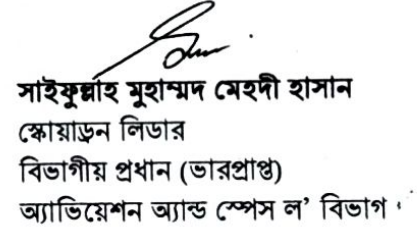 সাইফুল্লাহ মুহাম্মদ মেহদী হাসান
স্কোয়াড্রন লিডার
বিভাগীয় প্রধান (ভারপ্রাপ্ত)
অ্যাভিয়েশন অ্যান্ড স্পেস ল’ বিভাগ